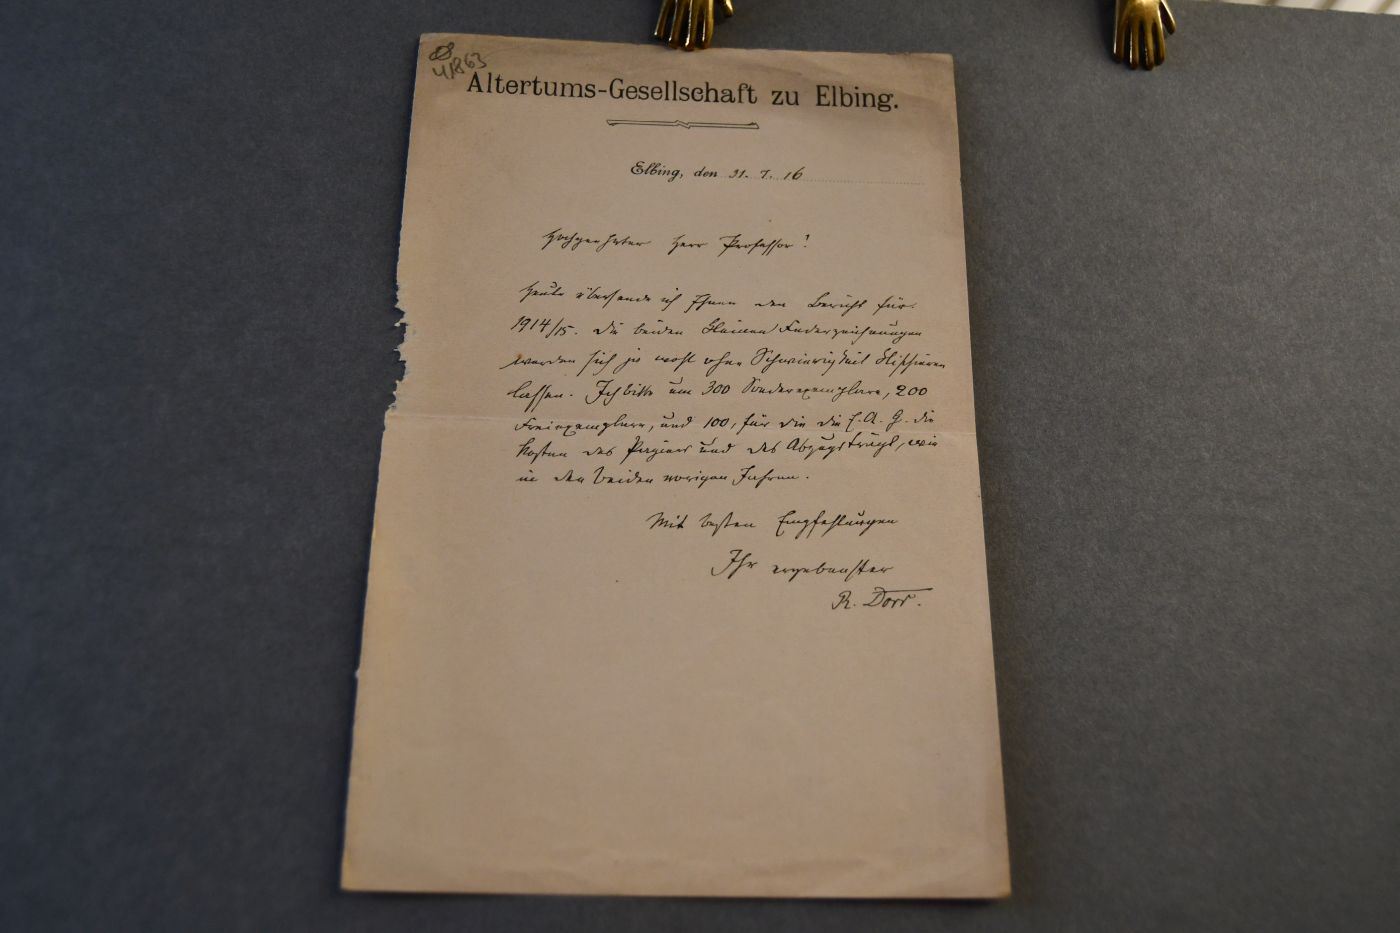 41863
Altertums-Gesellschaft zu Elbing.
Elbing, den 31. 7. 16
Hochgeehrter Herr Professor!
Heute übersende ich Ihnen den Bericht für
1914/15. Die beiden kleinen Federzeichnungen
werden sich ja wohl ohne Schwierigkeit klischieren
lassen. Ich bitte um 300 Sonderexemplare, 200
Freiexemplare, und 100, für die die E. A. G. die
Kosten des Papiers und des Abzugs trägt, wie
in den beiden vorigen Jahren.
Mit besten Empfehlungen
Ihr ergebenster
R. Dorr.